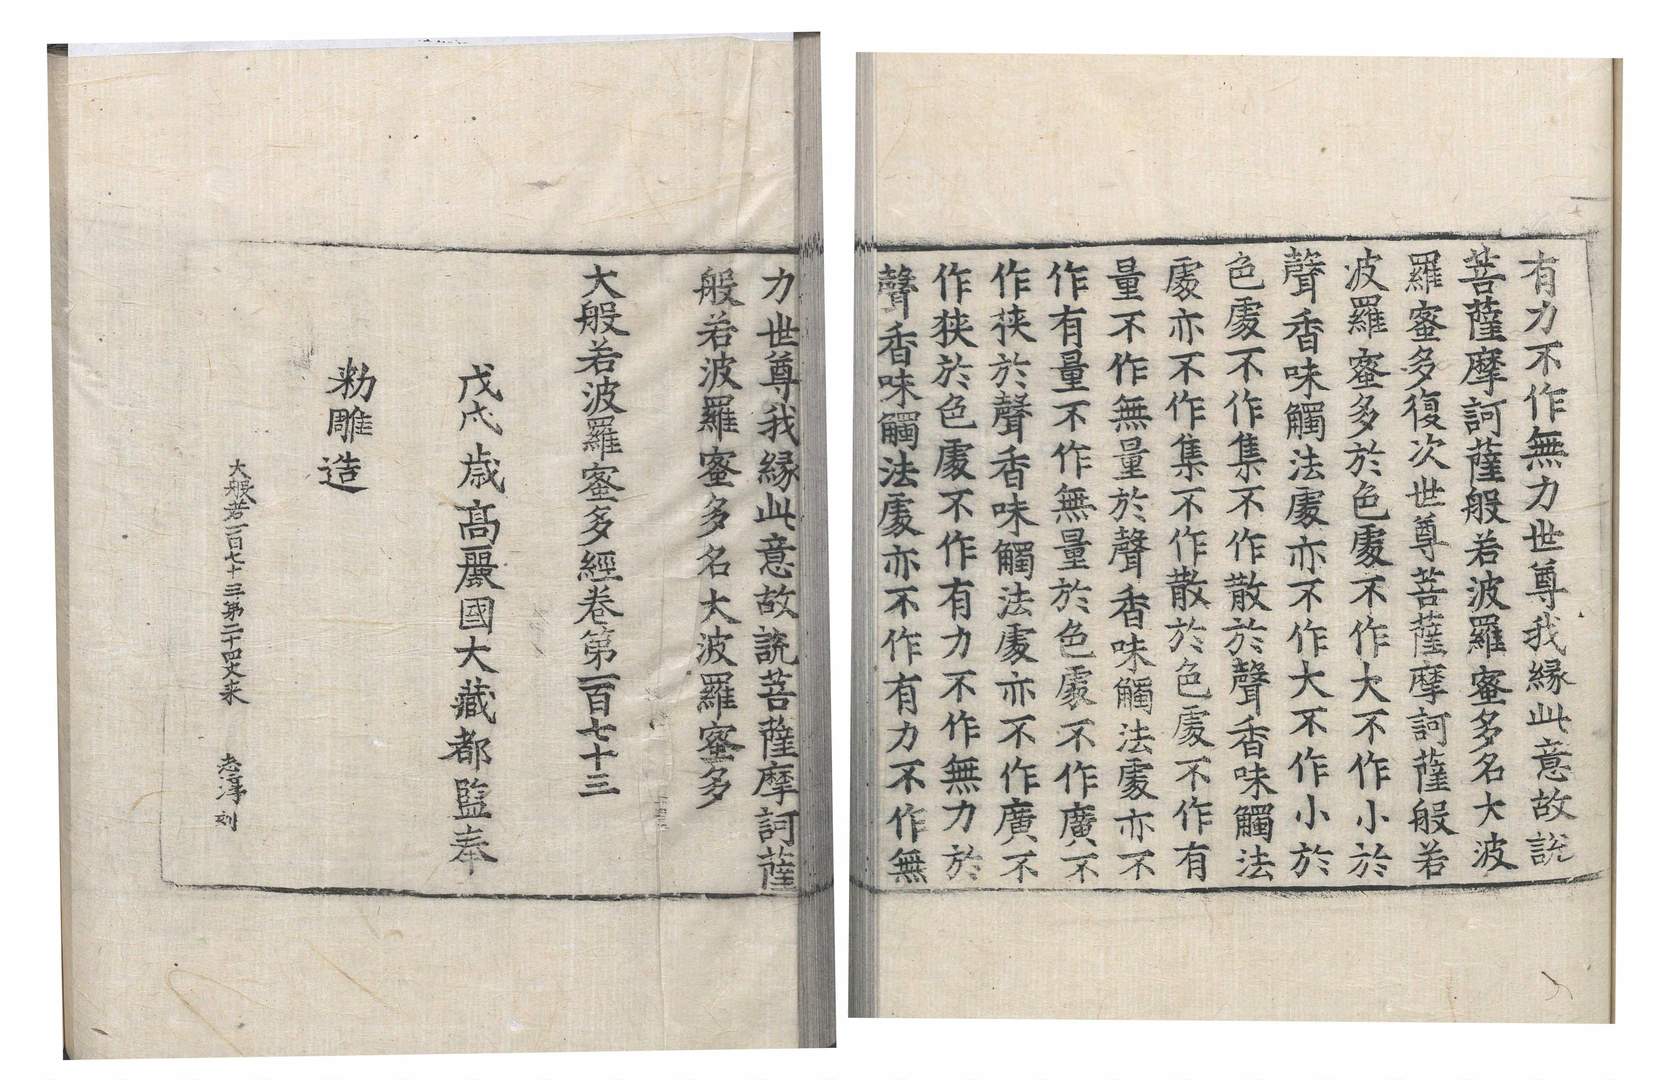 有力不作無力世尊我緣此意故說
菩薩摩訶薩般若波羅蜜多名大波
羅蜜多復次世尊菩薩摩訶薩般若
波羅蜜多於色處不作大不作小於
聲香味觸法處亦不作大不作小於
色處不作集不作散於聲香味觸法
處亦不作集不作散於色處不作有
量不作無量於聲香味觸法處亦不
作有量不作無量於色處不作廣不
作狹於聲香味觸法處亦不作廣不
作狹於色處不作有力不作無力於
聲香味觸法處亦不作有力不作無
力世尊我緣此意故說菩薩摩訶薩
般若波羅蜜多名大波羅蜜多
大般若波羅蜜多經卷第一百七十三
戊戌歲高麗國大藏都監奉
勑雕造
大般若一百七十三第二十四丈来
志淳刻